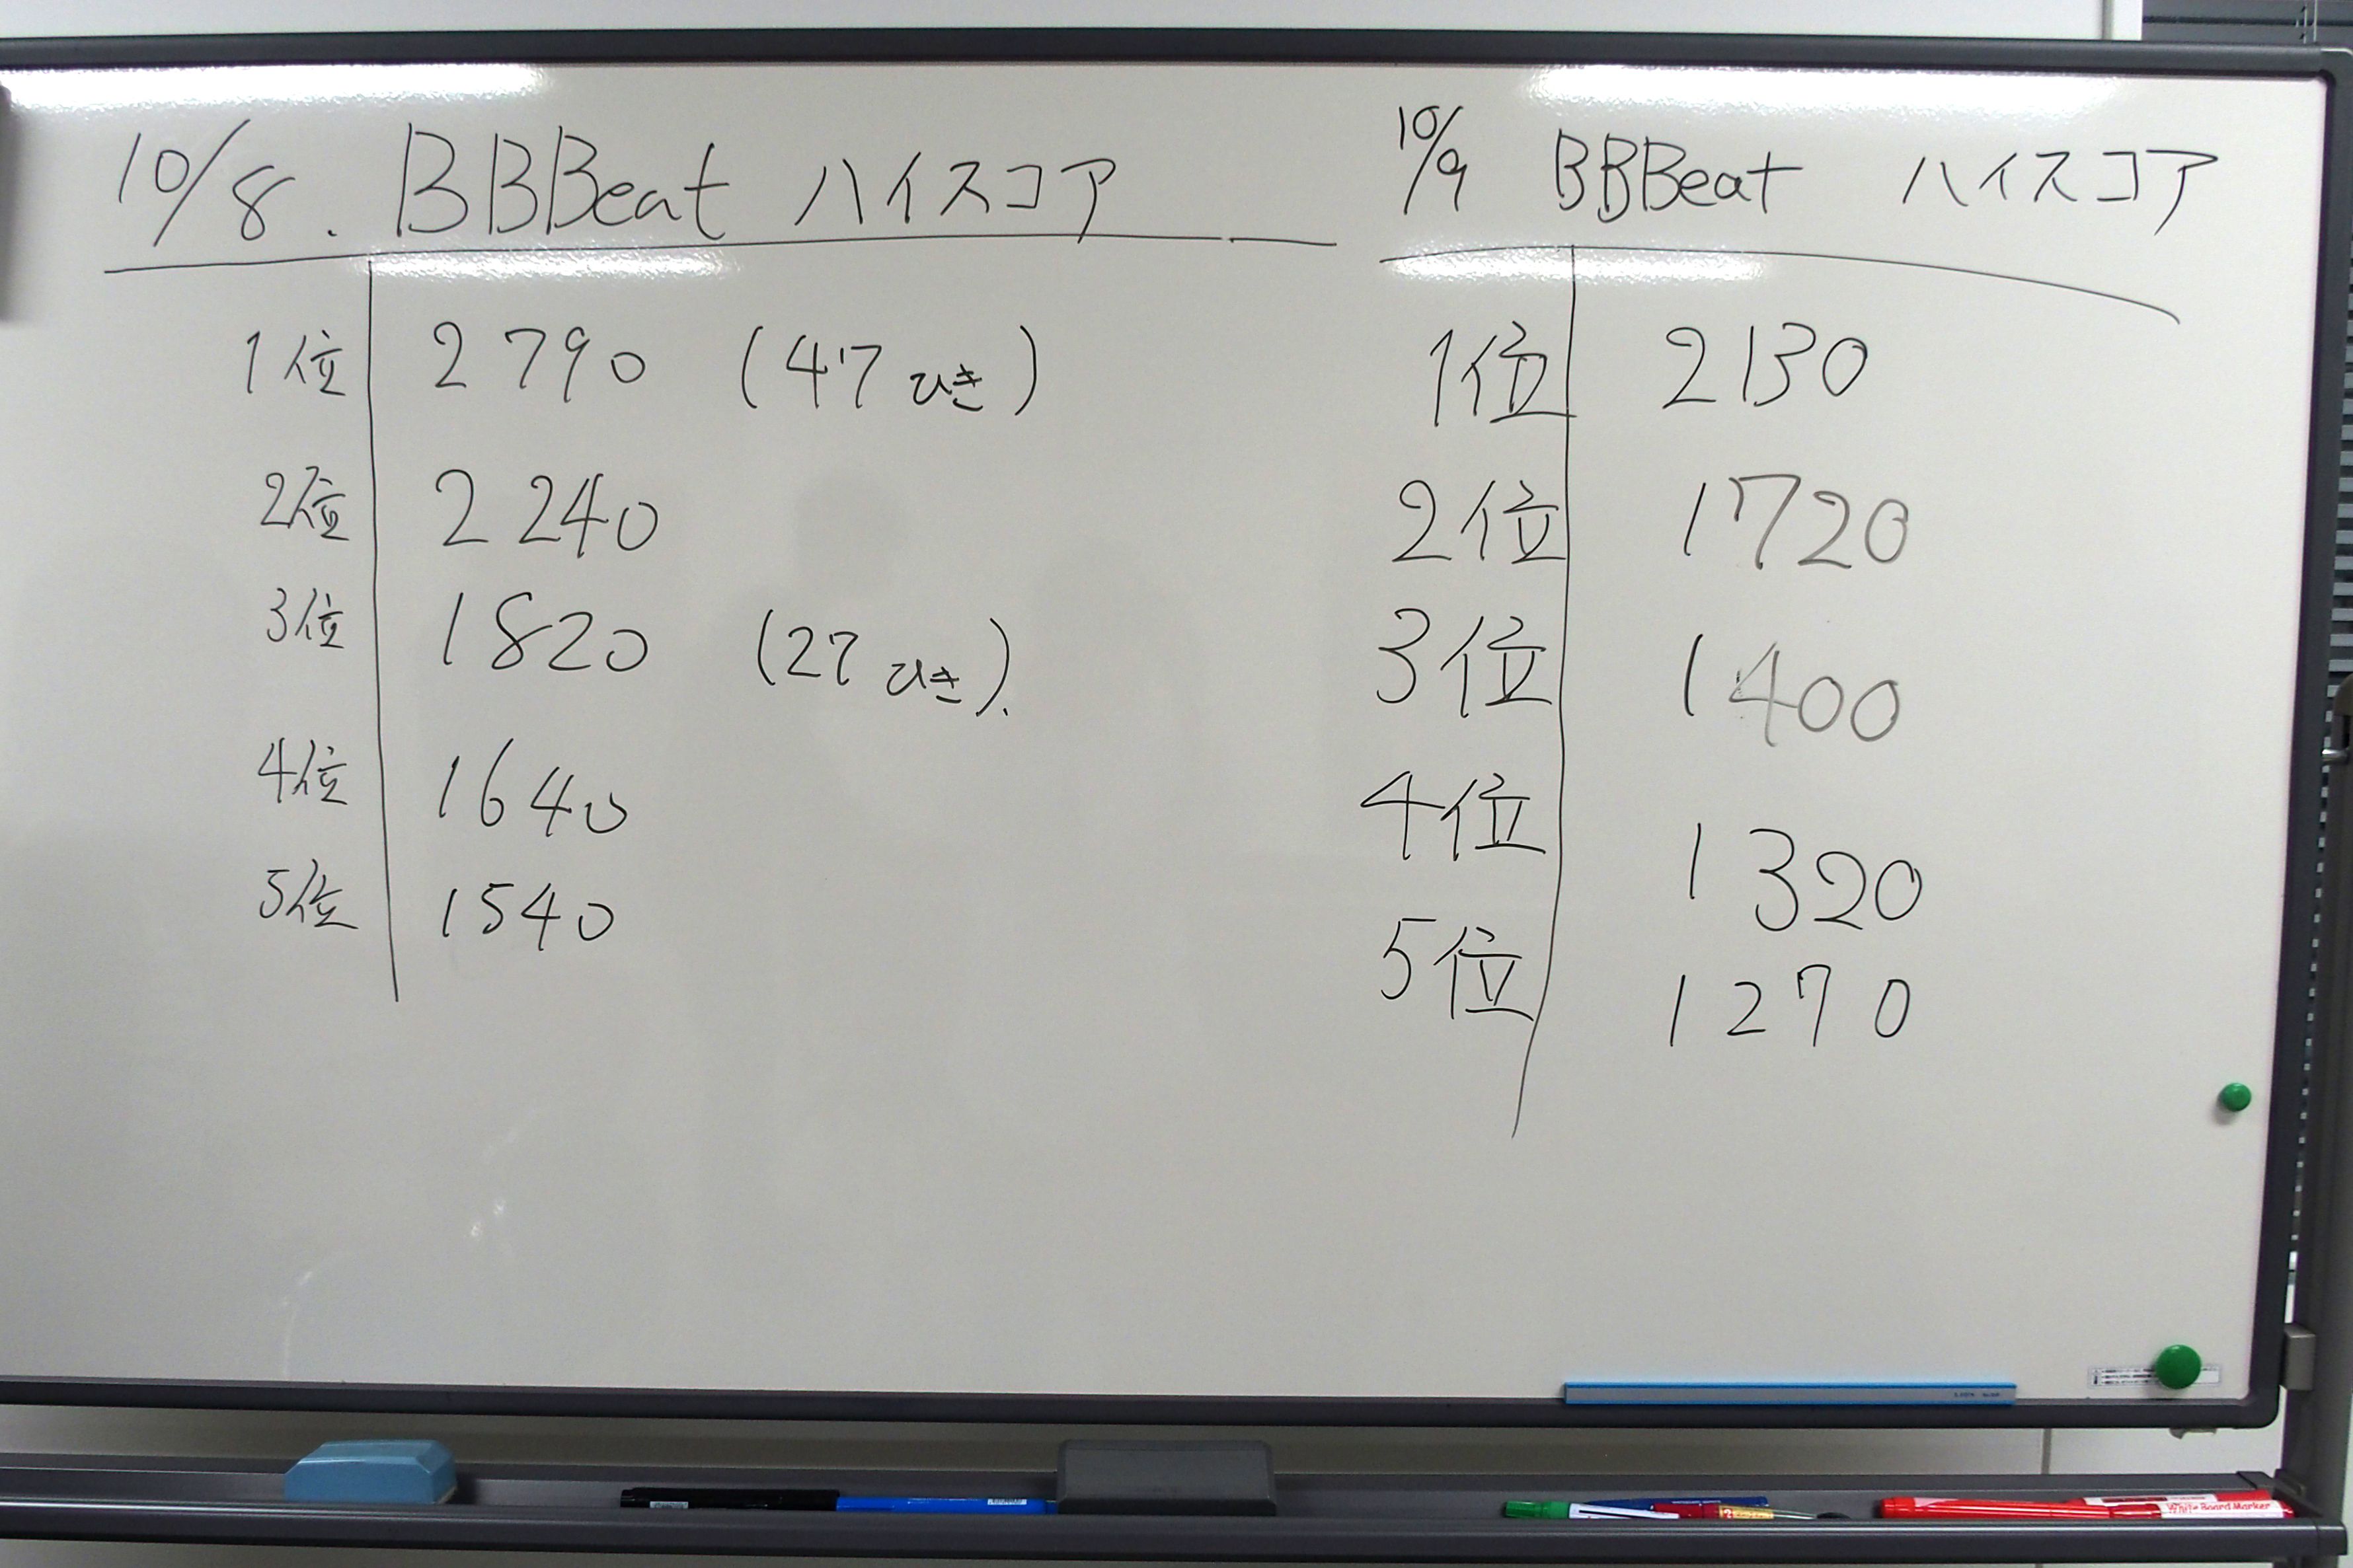 10/8. BBBeat ハイスコア
1位 2790 (47ひき)
2位 2240
3位 1820 (27ひき).
4位 1640
5位 1540
10/9 BBBeat ハイスコア
1位 2130
2位 1720
3位 1400
4位 1320
5位 1270
White Board Marker